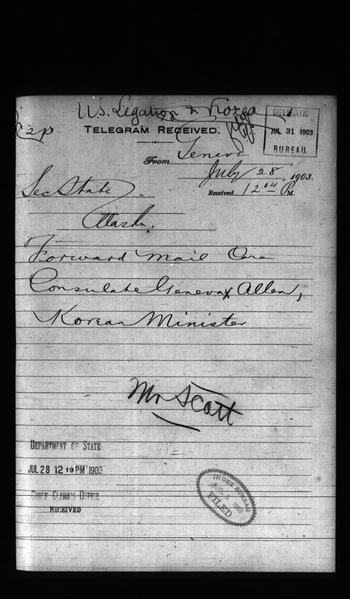 U.S. Legation Korea
TELEGRAM RECEIVED.
DIPLOMATIC
JUL 31 1903
BUREAU.
From Geneva
July 28, 1903.
Received 12 04 P M.
Sec State,
Wash.
Forward mail Care
Consulate Geneva x Allen,
Korean Minister
Mr Scott
DEPARTMENT OF STATE
JUL 28 12 19 PM 1903
CHIEF CLERK'S OFFICE
RECEIVED
INDEX BUREAU
1903
FILED